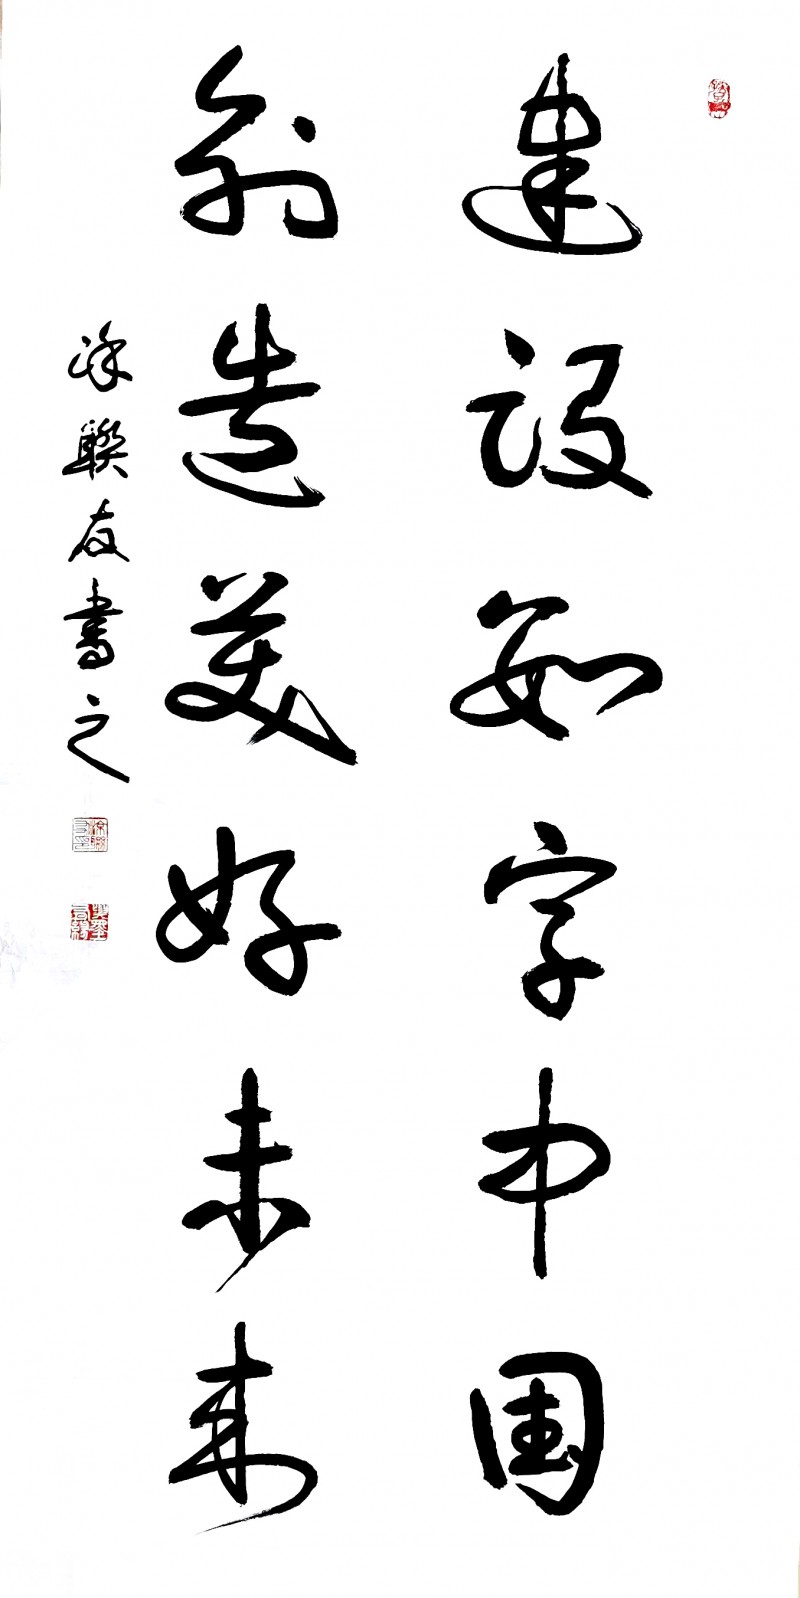 建设数字中国
创造美好未来
徐聯友書之